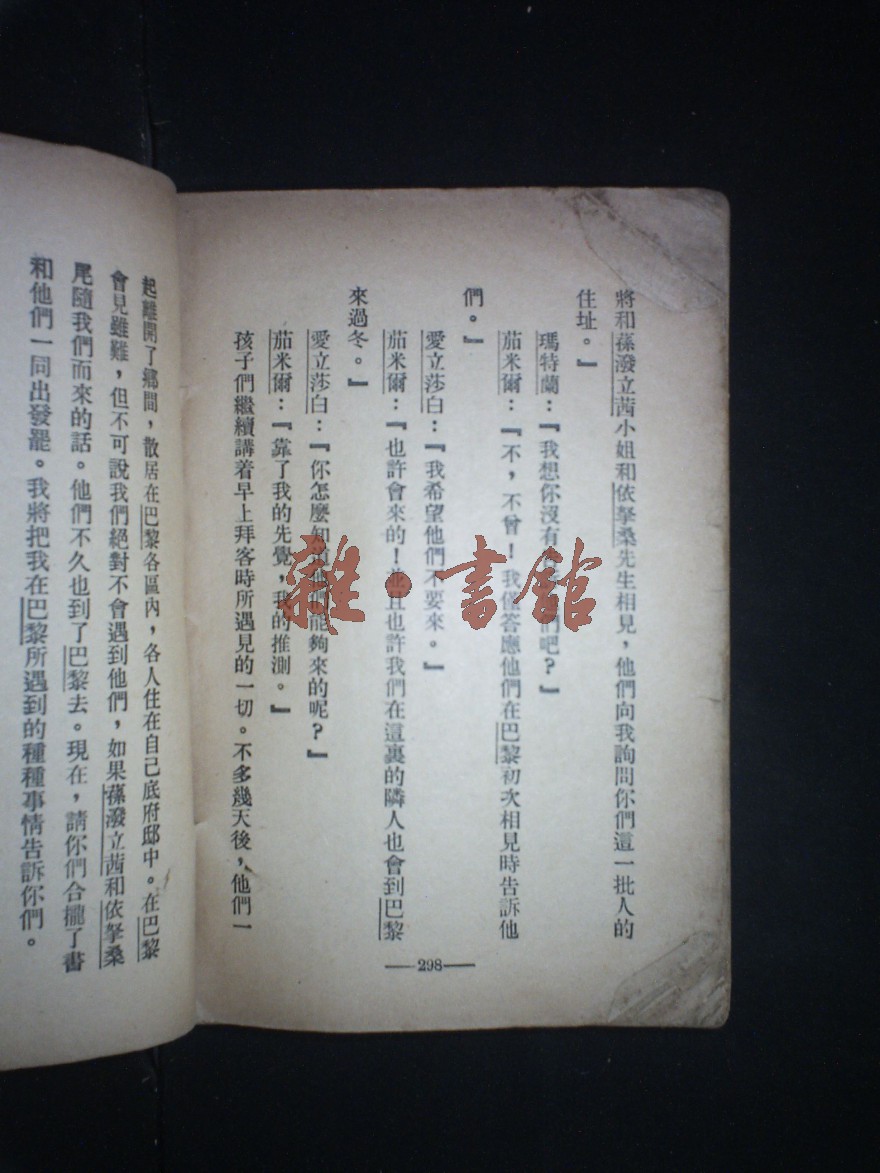 將和蓀潑立茜小姐和依拏桑先生相見，他們向我詢問你們這一批人的
住址。』
瑪特蘭：『我想你沒有們吧？』
茄米爾：『不，不曾！我僅答應他們在巴黎初次相見時告訴他
們。』
愛立莎白：『我希望他們不要來。』
茄米爾：『也許會來的！並且也許我們在這裏的隣人也會到巴黎
來過冬。』
愛立莎白：『你怎麼知道他們能夠來的呢？』
茄米爾：『靠了我的先覺，我的推測。』
孩子們繼續講着早上拜客時所遇見的一切。不多幾天後，他們一
298
起離開了鄉間，散居在巴黎各區內，各人住在自己底府邸中。在巴黎
會見雖難，但不可說我們絕對不會遇到他們，如果蓀潑立茜和依拏桑
尾隨我們而來的話。他們不久也到了巴黎去。現在，請你們合攏了書
和他們一同出發罷。我將把我在巴黎所遇到的種種事情告訴你們。
雜·書館